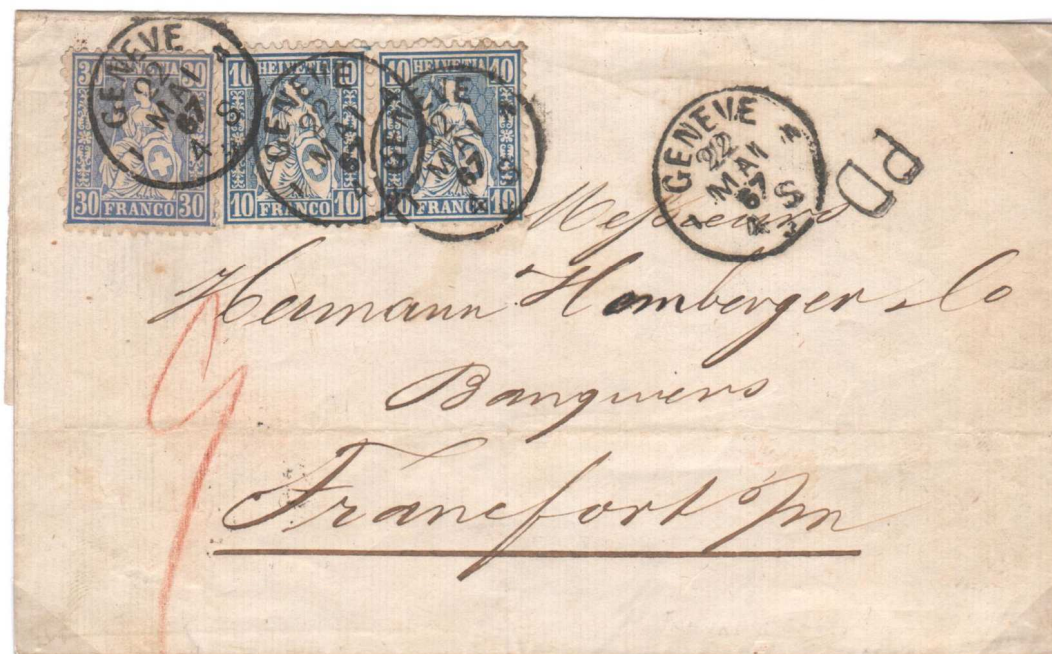 30 HELVETIA 30
FRANCO
30 30
10 HELVETIA 10
10 FRANCO 10
10 HELVETIA 10
10 FRANCO 10
GENEVE
22
MAI
67
S
GENEVE
22
MAI
67
GENEVE
22
MAI
67
S
GENEVE
22
MAI
67
S
PD
Messieurs
Hermann Homberger & Co
Banquiers
Francfort s/m